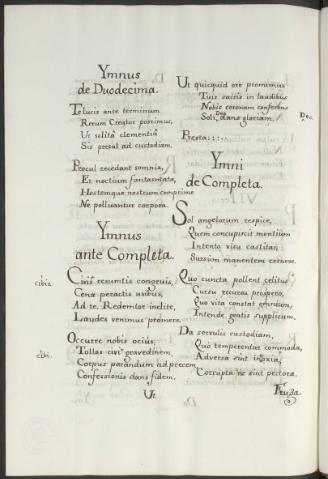 Ymnus
de Duodecima.
Te lucis ante terminum
Rerum Creator poscimus,
Ut solita clementia
Sis presul ad custodiam.
Procul recedant somnia,
Et noctium fantasmata,
Hostemque nostrum comprime
Ne polluantur corpora.
Ymnus
ante Completa.
cibis
Cibis resumtis congruis,
Cenæ peractis usibus,
Ad te, Redemtor inclite,
Laudes venimus promere
Occurre nobis ocius,
cibi.
Tollas cibi gravedinem,
Corpus parandum ad precem
Confessionis dans fidem,
Ut
Ut quicquid ore promimus
Tuis sacris in laudibus
Nobis coronam conferens
Soli Deo dans gloriam.
Deo
Presta:::
Ymni
de Completa.
Sol angelorum respice,
Quem concupiscit mentium
Intento visu castitas
Sursum manentem cernere.
Quo cuncta pollent celitus
Cursu recursu prospero,
Quo vita constat omnium,
Intende gratis supplicum,
Da sæculis custodiam,
Quo temperentur commoda,
Adversa sint innoxia,
Corrupta ne sint pectora.